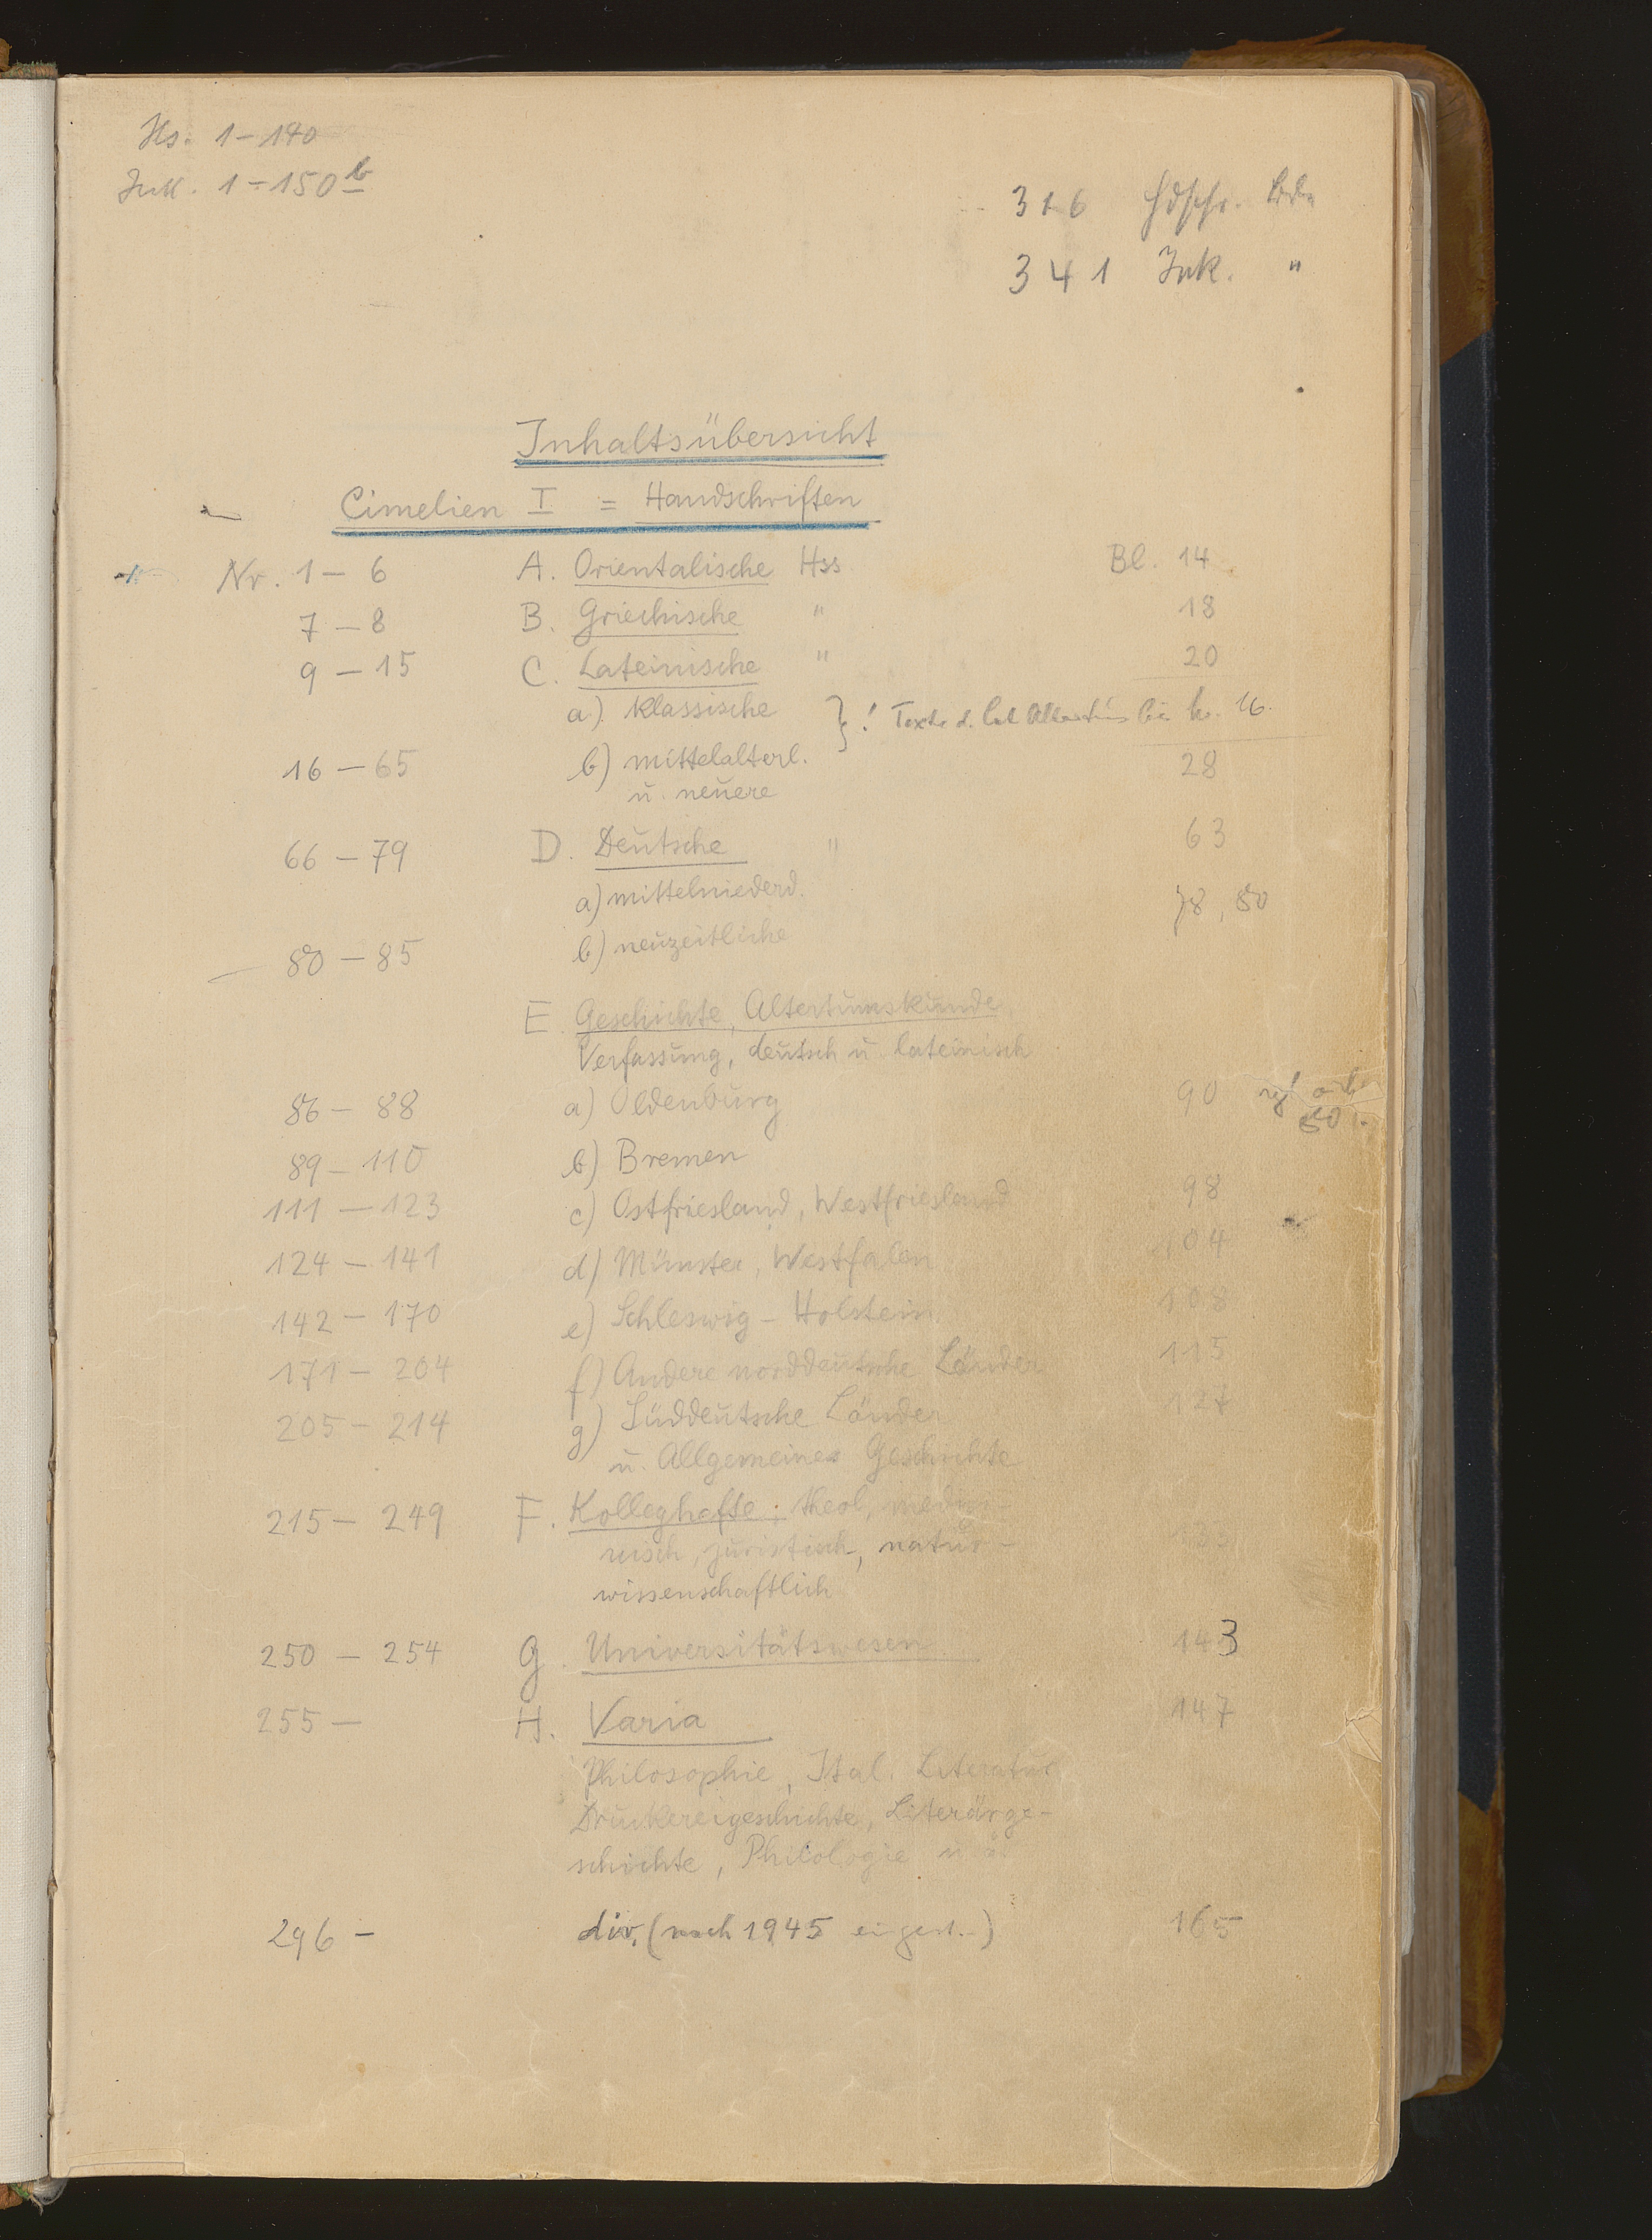 Hs. 1-140
Ink. 1-150b
316 Hdschr. Bde
341 Ink. "
Inhaltsübersicht
Cimelien I = Handschriften
Nr. 1 - 6 A. Orientalische Hss Bl. 14
7 - 8 B. Griechische " 18
9 - 15 C. Lateinische " 20
a) klassische } ! Texte d. lat. Altertums bis Nr. 16.
16 - 65 b) mittelalterl. 28
u. neuere
66 - 79 D. Deutsche " 63
a) mittelniederd.
78, 80
80 - 85 b) neuzeitliche
E. Geschichte, Altertumskunde,
Verfassung, deutsch u. lateinisch
86 - 88 a) Oldenburg 90
80
89 - 110 b) Bremen
111 - 123 c) Ostfriesland, Westfriesland 98
124 - 141 d) Münster, Westfalen 104
142 - 170 e) Schleswig-Holstein 108
171 - 204 f) Andere norddeutsche Länder 115
205 - 214 g) Süddeutsche Länder 127
u. Allgemeines Geschichte
215 - 249 F. Kolleghefte: theol, medizi-
nisch, juristisch, natur- 133
wissenschaftlich
250 - 254 G. Universitätswesen 143
255 - H. Varia 147
Philosophie, Ital. Literatur
Druckereigeschichte, Literärge-
schichte, Philologie u.
296 - div. (nach 1945 165